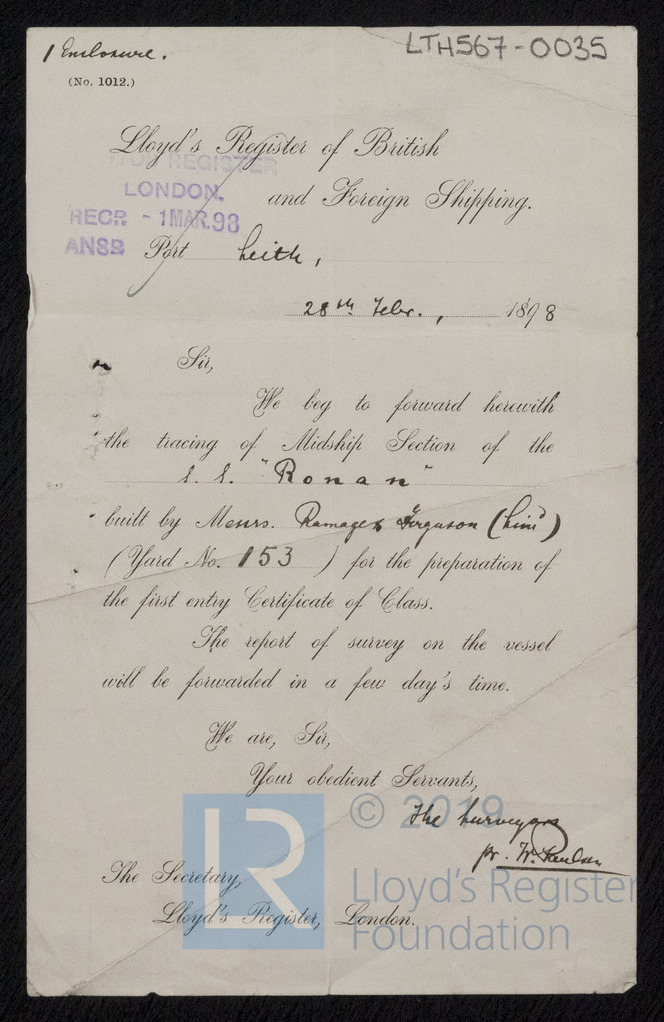 1 Enclosure.
LTH567-0035
(No. 1012.)
Lloyd's Register of British
REGISTER
LONDON.
and Foreign Shipping.
RECD - 1 MAR.98
ANSD
Port Leith,
28th Febr., 1898
Sir,
We beg to forward herewith
the tracing of Midship Section of the
S. S. "Ronan"
built by Messrs. Ramage & Ferguson (Limd)
(Yard No. 153) for the preparation of
the first entry Certificate of Class.
The report of survey on the vessel
will be forwarded in a few day's time.
We are, Sir,
Your obedient Servants,
© 2019
The Surveyors
pr. W.
The Secretary,
Lloyd's Register, London.
LR
Lloyd's Register
Foundation